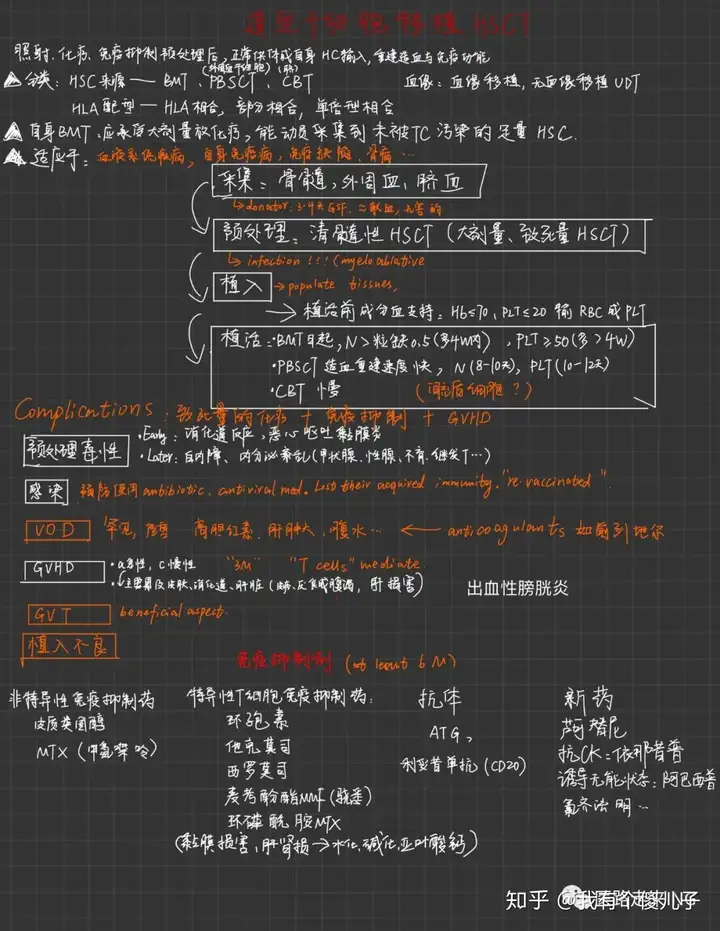 造血干细胞移植HSCT
照射、化疗、免疫抑制预处理后,正常供体或自身HC输入,重建造血与免疫功能
分类:HSC来源——BMT、PBSCT(外周血干细胞)、CBT(脐) 血缘:血缘移植,无血缘移植UDT
HLA配型——HLA相合,部分相合,单倍型相合
自身BMT.应承受大剂量放化疗,能动员采集到未被TC污染的足量HSC.
适应于:血液系统疾病,自身免疫病,免疫缺陷,肾病…
采集:骨髓,外周血,脐血
→donator:3-4天GSF.≈献血,无害的
预处理:清髓性HSCT(大剂量、致死量HSCT)
infection!!!(myeloablative
植入→populate tissues,
→植活前成分血支持:Hb≤70,PLT≤20输RBC或PLT
植活:·BMT日起,N>粒缺0.5(多4W内),PLT≥50(多>4W)
·PBSCT造血重建速度快,N(8-10天),PLT(10-12天)
·CBT慢
Complications:致死量的化疗+免疫抑制+GVHD
预处理毒性 ·Early:消化道反应,恶心呕吐黏膜炎
·Later:白内障、内分泌紊乱(甲状腺、性腺、不育、继发T…)
感染 预防使用antibiotic、antiviral med. Lost their acquired immunity."re-vaccinated".
VOD 罕见,高胆红素、肝肿大、腹水…←anticoagulants如前列地尔
GVHD ·a急性,c慢性 "3M" "T cells" mediate
·主要累及皮肤、消化道、肝脏(肝损害)
出血性膀胱炎
GVT beneficial aspect.
植入不良
免疫抑制剂(at least 6M)
非特异性免疫抑制药
皮质类固醇
MTX(甲氨蝶呤)
特异性T细胞免疫抑制药:
环孢素
他克莫司
西罗莫司
麦考酚酯MMF(骁悉)
环磷酰胺MTX
(黏膜损害、肝肾损→水化、碱化、亚叶酸钙)
抗体
ATG、
利妥昔单抗(CD20)
新药
芦可替尼
抗CK:依那西普
诱导无能状态:阿巴西普
来那度胺…
知乎 @我有个傻儿子